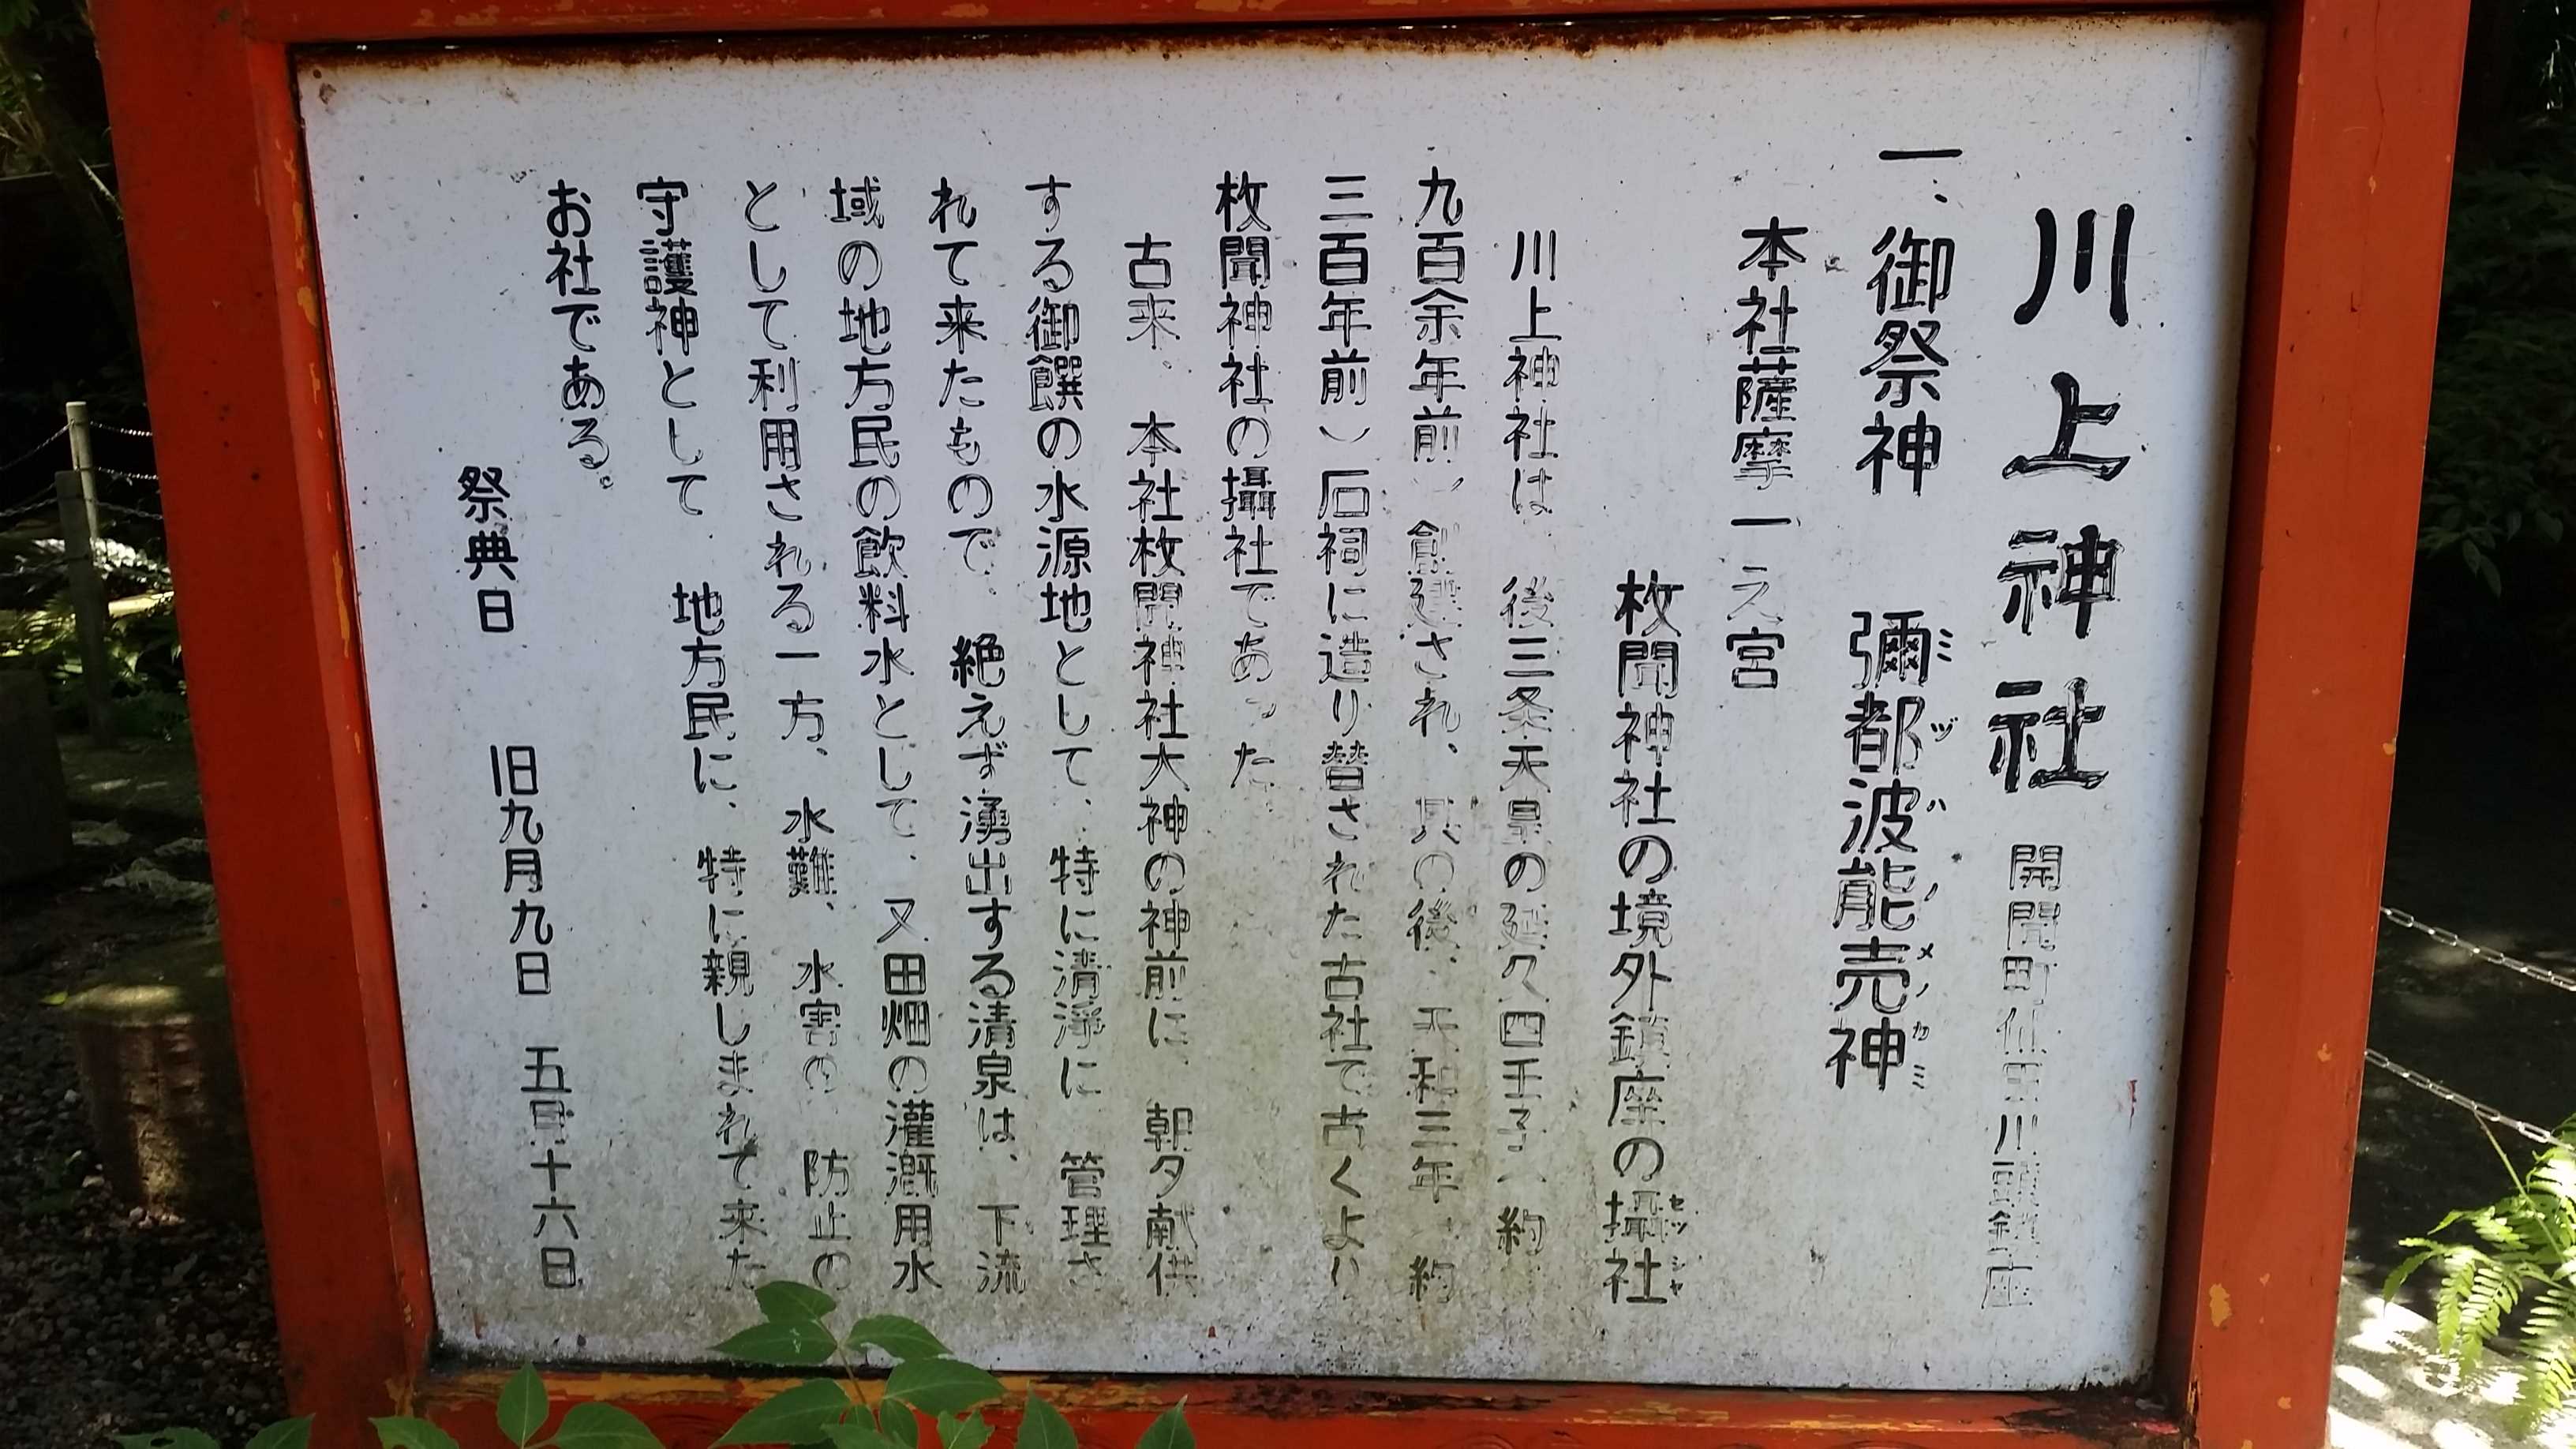 川上神社 開聞町仙田川頭鎮座
一、御祭神 彌都波能売神
ミヅハノメノカミ
本社薩摩一之宮
枚聞神社の境外鎮座の攝社
セッシャ
川上神社は 後三条天皇の延久四壬子(約
九百余年前)創建され、其の後、天和三年(約
三百年前)石祠に造り替された古社で古くより
枚聞神社の攝社であった。
古来、本社枚聞神社大神の神前に、朝夕献供
する御饌の水源地として、特に清浄に 管理さ
れて来たもので、絶えず湧出する清泉は、下流
域の地方民の飲料水として、又田畑の灌漑用水
として利用される一方、水難、水害の 防止の
守護神として 地方民に、特に親しまれて来た
お社である。
祭典日 旧九月九日 五月十六日